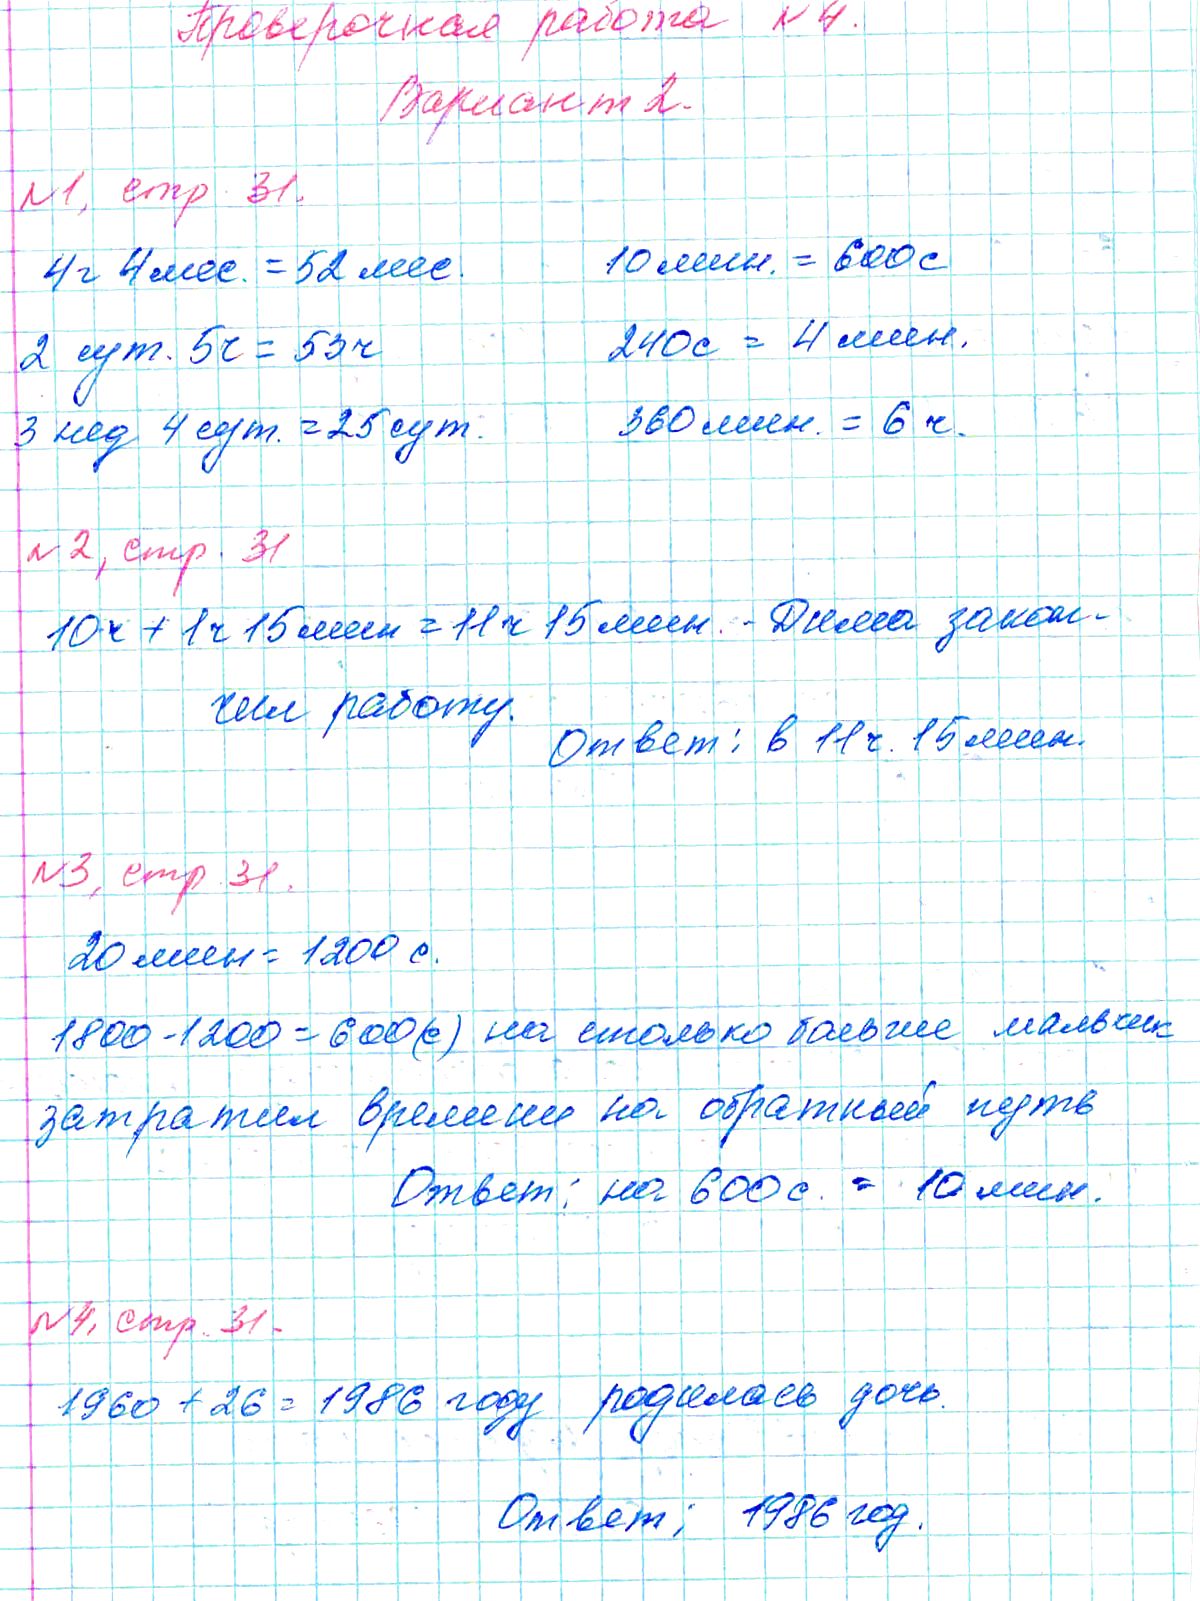 Проверочная работа №4.
Вариант 2.
№1, стр. 31.
4г 4мес. = 52 мес.
10 мин. = 600 с
2 сут. 5ч = 53ч
240с = 4 мин.
3 нед 4 сут. = 25 сут.
360 мин. = 6 ч.
№2, стр. 31
10ч + 1ч 15 мин = 11ч 15 мин. - Дима закон-
чил работу.
Ответ: в 11ч. 15 мин.
№3, стр. 31.
20 мин = 1200 с.
1800 - 1200 = 600(с) на столько больше мальчик
затратил времени на обратный путь
Ответ: на 600 с. = 10 мин.
№4, стр. 31.
1960 + 26 = 1986 году родилась дочь.
Ответ: 1986 год.